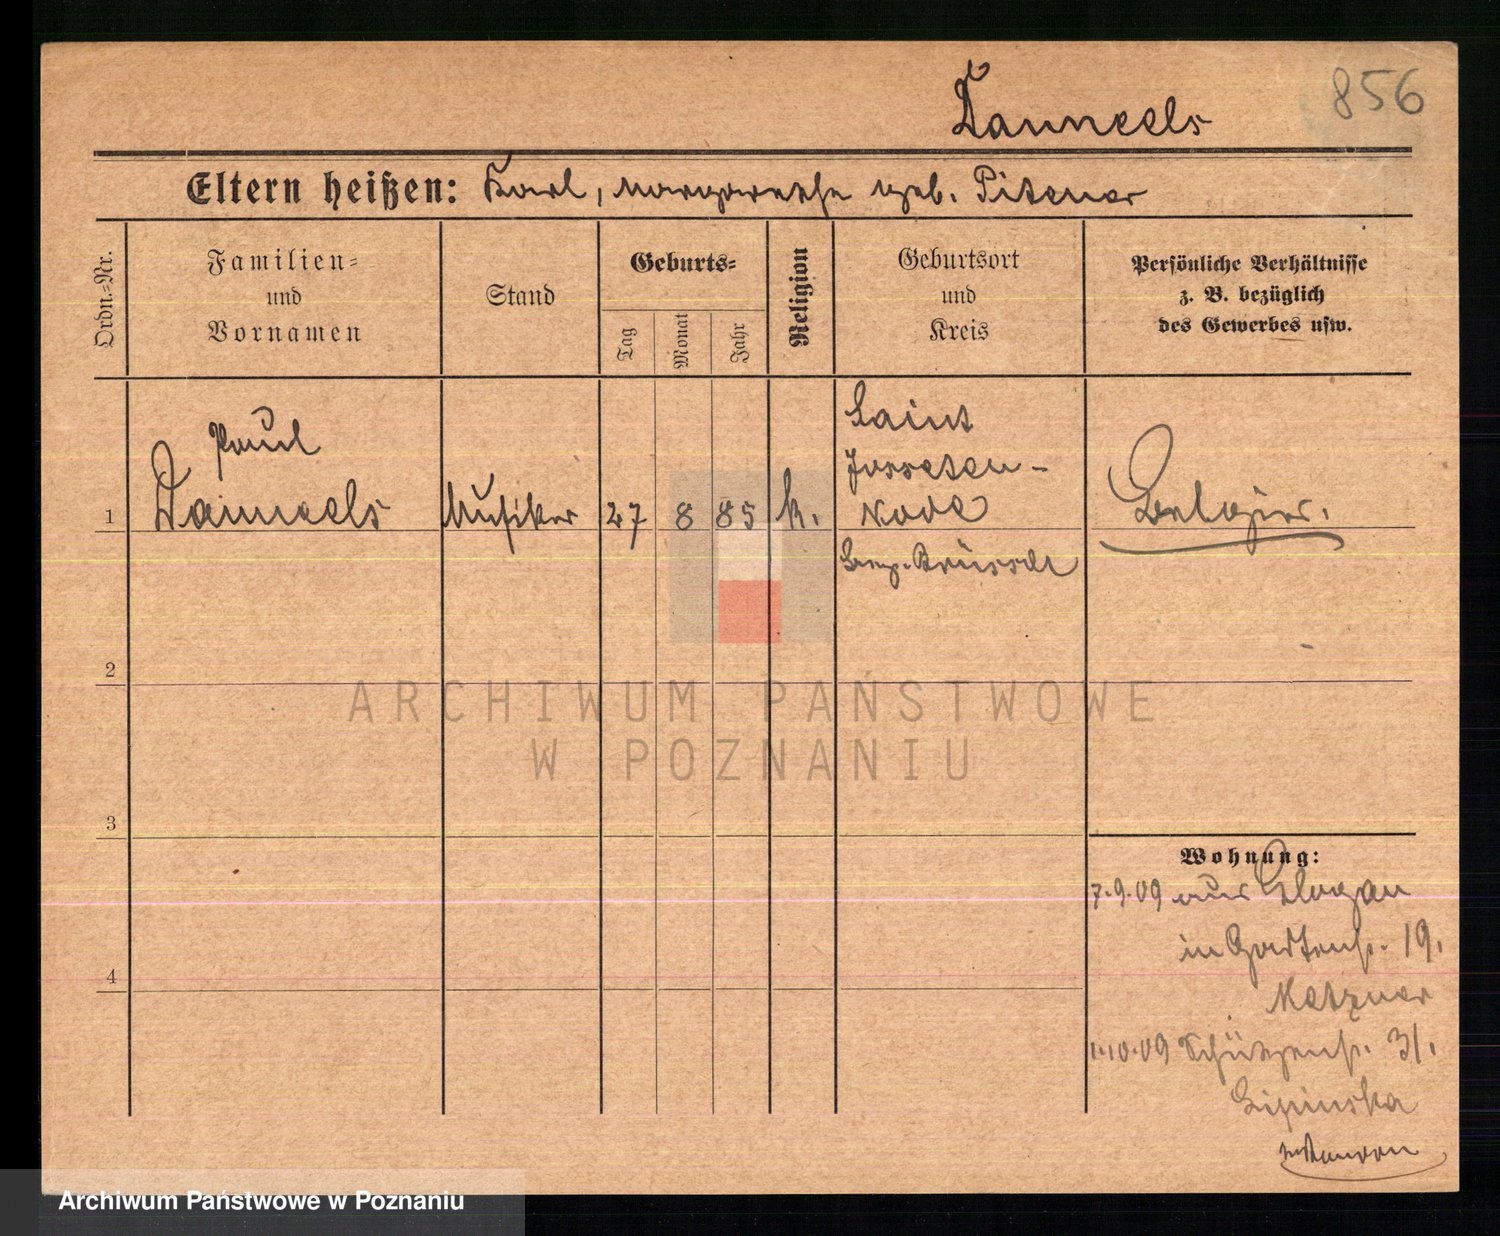 856
Danneels
Eltern heißen: Karl, Margarethe geb. Pitener
Ordn.-Nr.
Familien-
und
Vornamen
Stand
Geburts-
Tag
Monat
Jahr
Religion
Geburtsort
und
Kreis
Persönliche Verhältnisse
z. B. bezüglich
des Gewerbes usw.
Paul
Danneels
1
Musiker
27
8
85
k.
Saint
Josseten-
node
Brüssel
Belgier.
2
3
4
Wohnung:
7.9.09 aus Glogau
in Gartenst. 19.
Metzner
1.10.09 Schützenst. 31.
Lipinska
ARCHIWUM PAŃSTWOWE
W POZNANIU
Archiwum Państwowe w Poznaniu